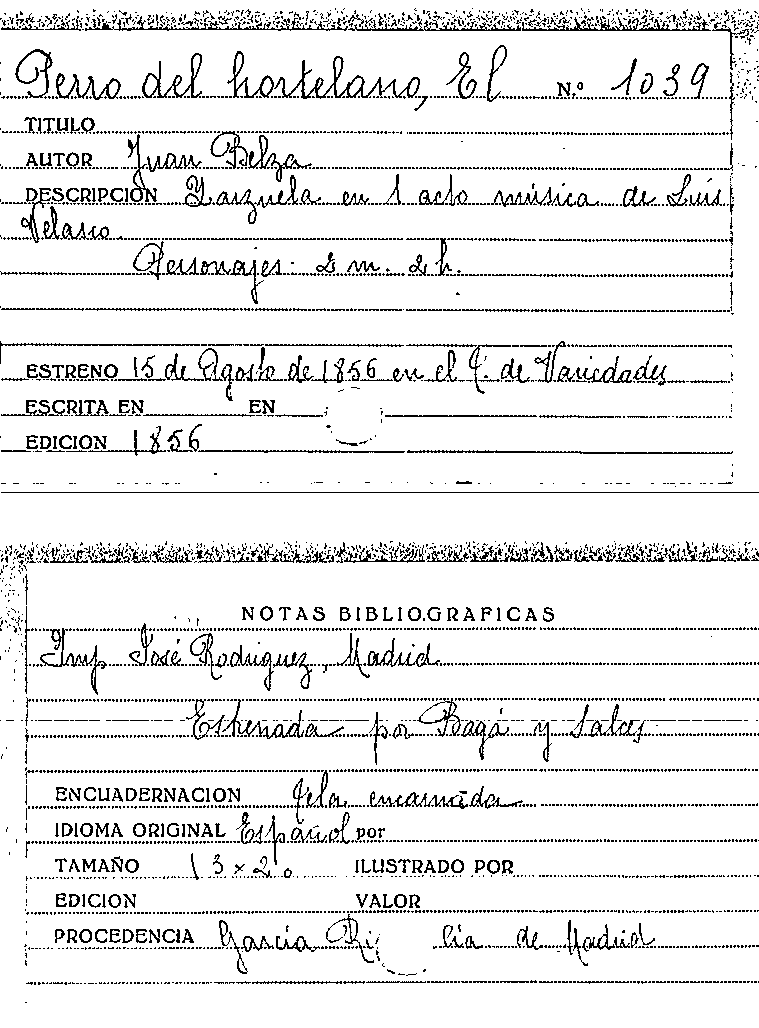 Perro del hortelano, El N.º 1039
TITULO
AUTOR Juan Belza
DESCRIPCION Zarzuela en 1 acto música de Luis
Velasco.
Personajes: 2 m. 2 h.
ESTRENO 15 de Agosto de 1856 en el T. de Variedades
ESCRITA EN EN
EDICION 1856
NOTAS BIBLIOGRAFICAS
Imp José Rodriguez, Madrid
Estrenada por Bagá y Salces
ENCUADERNACION Tela encarnada
IDIOMA ORIGINAL Español por
TAMAÑO 13 x 20 ILUSTRADO POR
EDICION VALOR
PROCEDENCIA García de Madrid